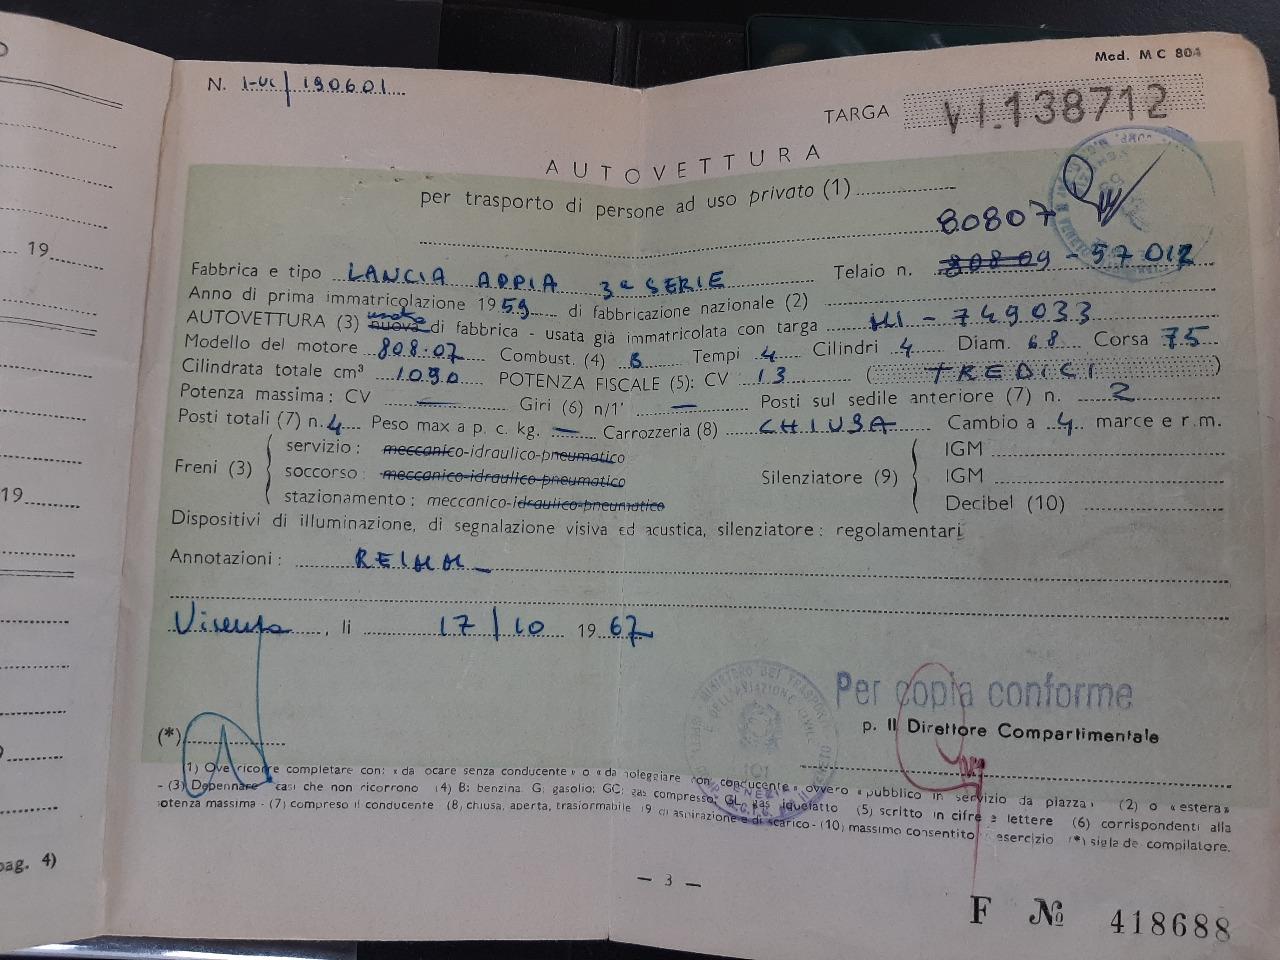 Mod. M C 804
N. I-VI/190601
TARGA VI.138712
AUTOVETTURA
per trasporto di persone ad uso privato (1)
80807
Fabbrica e tipo LANCIA APPIA 3ª SERIE Telaio n. 80809 - 57012
Anno di prima immatricolazione 1959 di fabbricazione nazionale (2)
AUTOVETTURA (3) nuova di fabbrica - usata già immatricolata con targa MI - 749033
Modello del motore 808.07 Combust. (4) B Tempi 4 Cilindri 4 Diam. 68 Corsa 75
Cilindrata totale cm³ 1090 POTENZA FISCALE (5): CV 13 (TREDICI)
Potenza massima: CV — Giri (6) n/1' — Posti sul sedile anteriore (7) n. 2
Posti totali (7) n. 4 Peso max a p. c. kg. — Carrozzeria (8) CHIUSA Cambio a 4 marce e r.m.
Freni (3)
servizio: meccanico-idraulico-pneumatico
soccorso: meccanico-idraulico-pneumatico
stazionamento: meccanico-idraulico-pneumatico
Silenziatore (9)
IGM
IGM
Decibel (10)
Dispositivi di illuminazione, di segnalazione visiva ed acustica, silenziatore: regolamentari
Annotazioni: REIMM.
Vicenza, li 17/10 1967
Per copia conforme
p. Il Direttore Compartimentale
(*)
(1) Ove ricorre completare con: «da locare senza conducente» o «da noleggiare con conducente» ovvero «pubblico in servizio da piazza» (2) o «estera»
- (3) Depennare casi che non ricorrono (4) B: benzina G: gasolio; GC: gas compresso; GL gas liquefatto (5) scritto in cifre e lettere (6) corrispondenti alla
potenza massima - (7) compreso il conducente (8) chiusa, aperta, trasformabile (9) di aspirazione e di scarico - (10) massimo consentito esercizio (*) sigla del compilatore.
— 3 —
F № 418688
19
19
pag. 4)